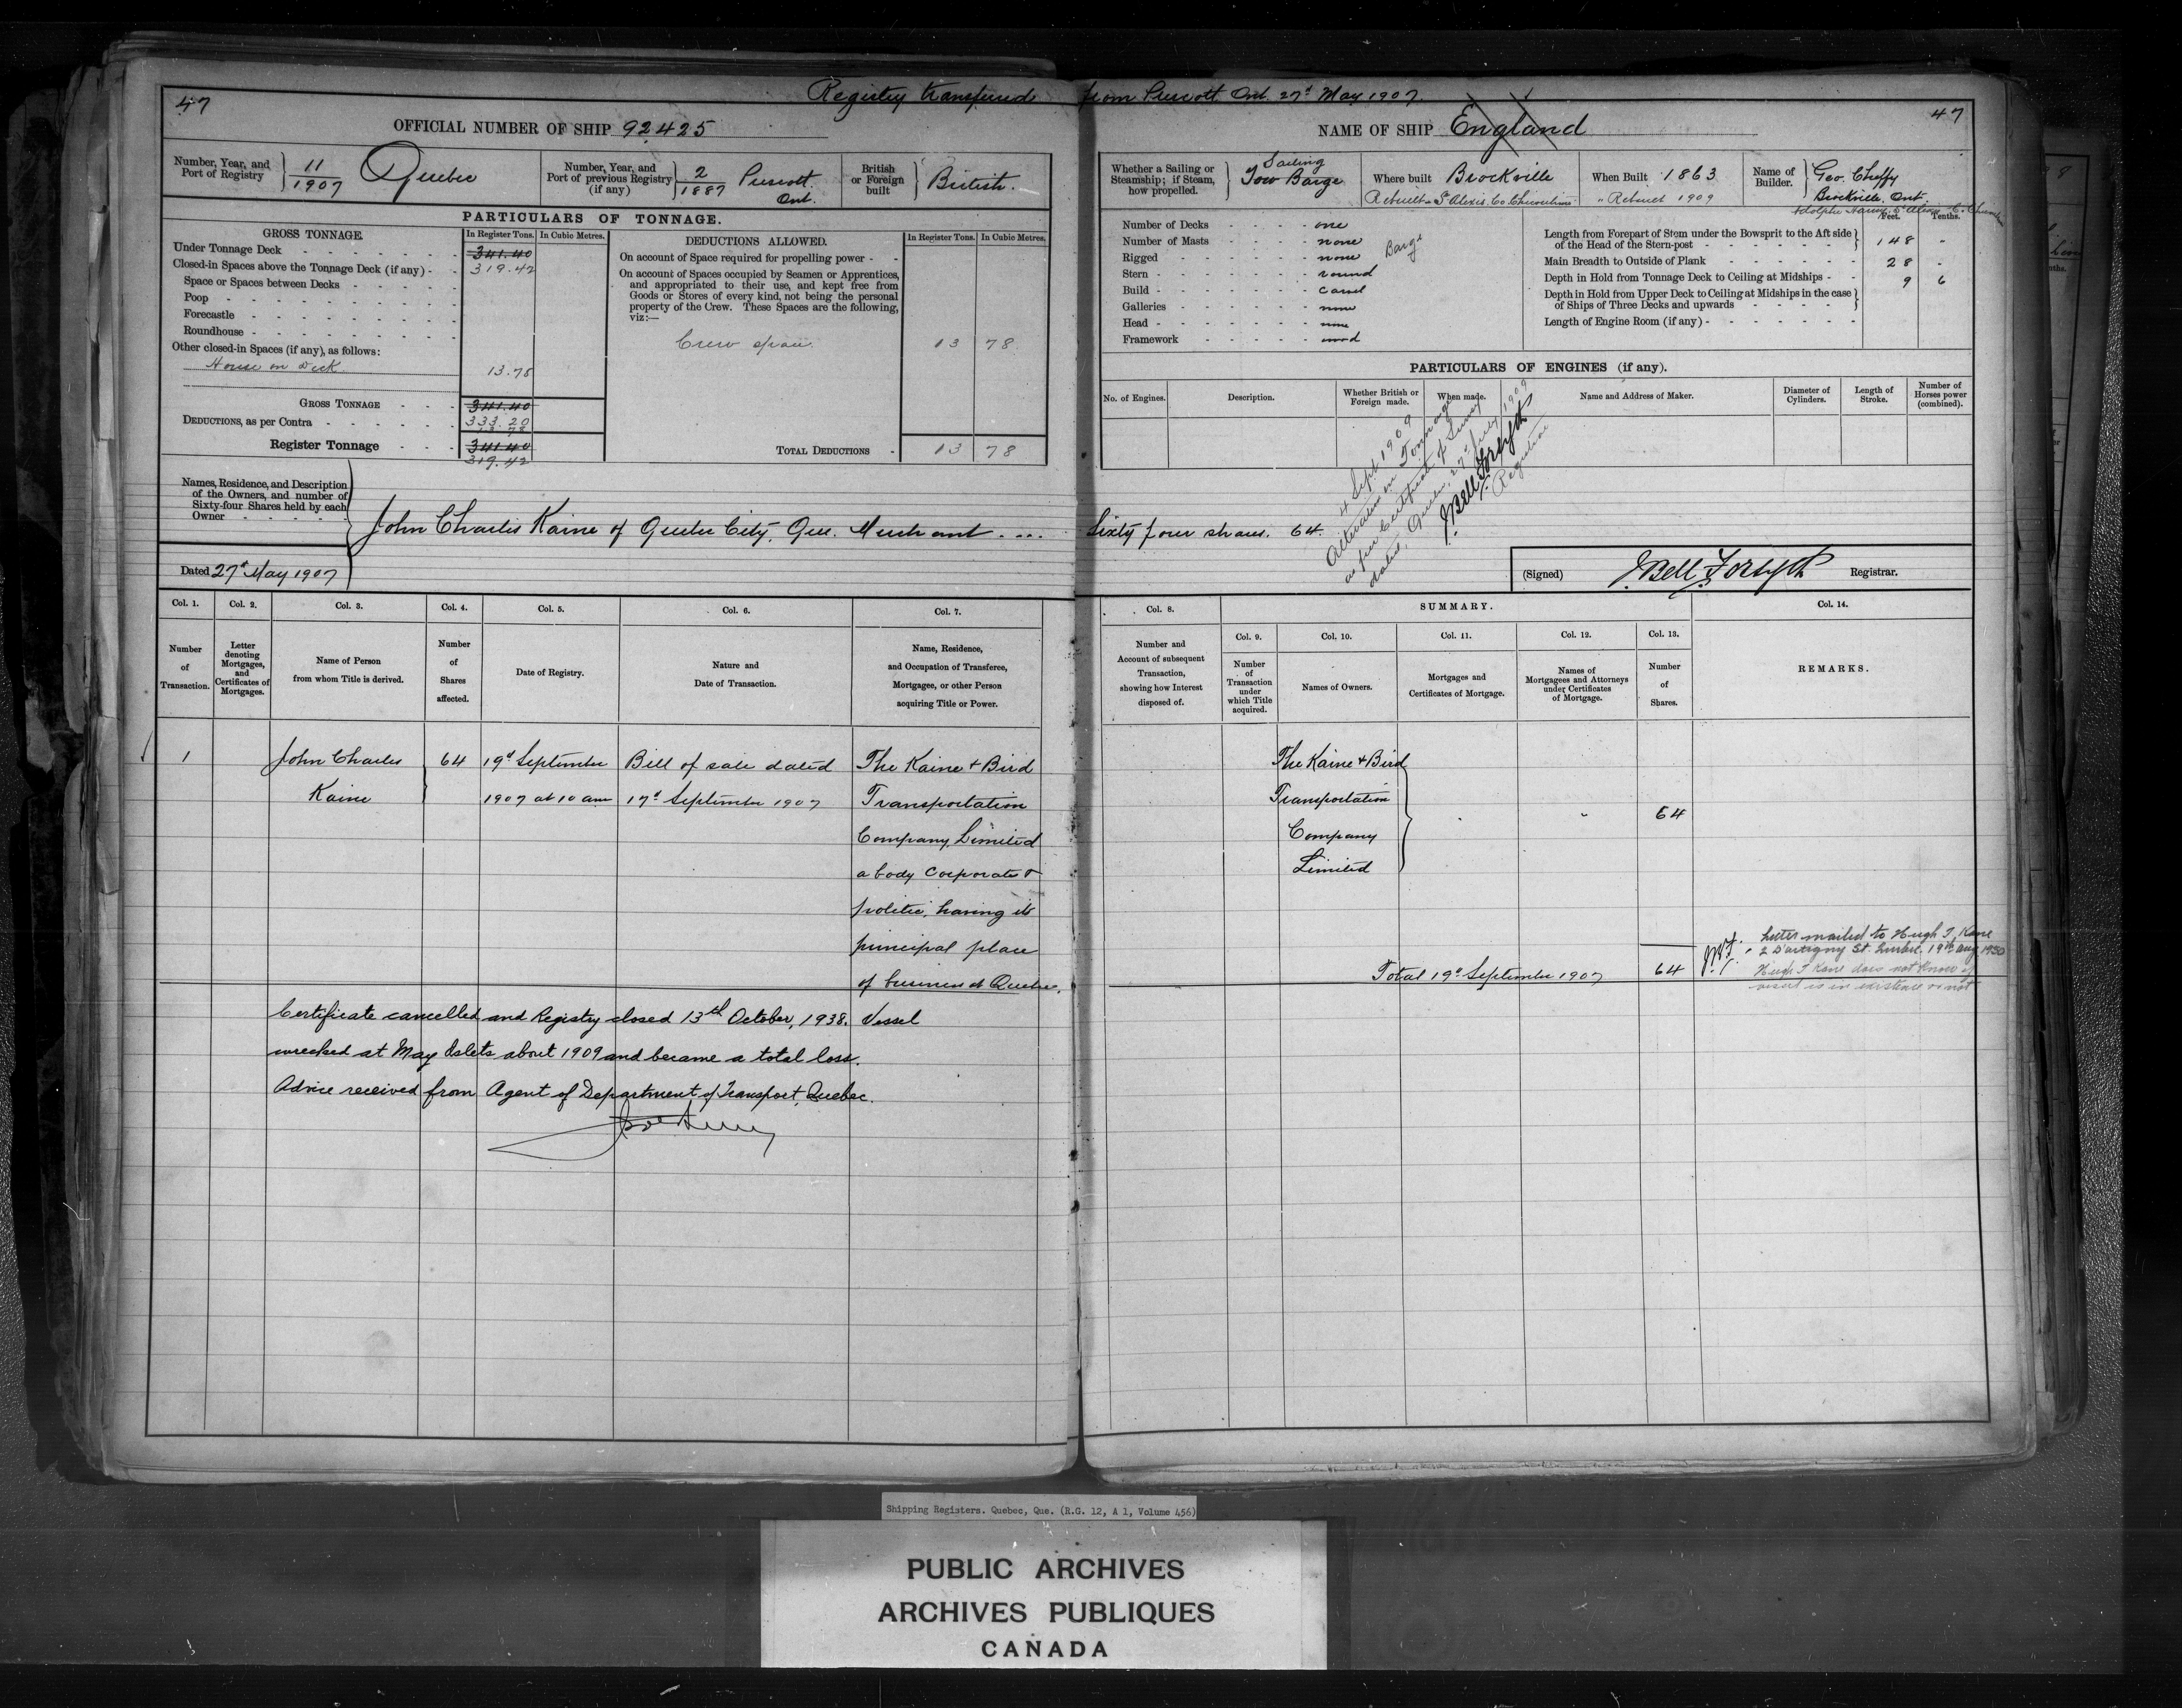 Registry transferred from Prescott Ont. 27th May 1907.
47
OFFICIAL NUMBER OF SHIP 92425
NAME OF SHIP England
47
Number, Year, and Port of Registry 11/1907 Quebec
Number, Year, and Port of previous Registry (if any) 2/1887 Prescott. Ont.
British or Foreign built British.
Whether a Sailing or Steamship; if Steam, how propelled. Sailing Tow Barge
Where built Brockville
Rebuilt St Alexis. Co. Chicoutimi
When Built 1863
" Rebuilt 1909
Name of Builder. Geo. Cheffy
Brockville. Ont.
PARTICULARS OF TONNAGE.
GROSS TONNAGE.
In Register Tons.
In Cubic Metres.
Under Tonnage Deck 341.40
319.42
Closed-in Spaces above the Tonnage Deck (if any)
Space or Spaces between Decks
Poop
Forecastle
Roundhouse
Other closed-in Spaces (if any), as follows:
House on Deck 13.78
GROSS TONNAGE 341.40
333.20
DEDUCTIONS, as per Contra
13 78
Register Tonnage 341.40
319.42
DEDUCTIONS ALLOWED.
In Register Tons.
In Cubic Metres.
On account of Space required for propelling power
On account of Spaces occupied by Seamen or Apprentices,
and appropriated to their use, and kept free from
Goods or Stores of every kind, not being the personal
property of the Crew. These Spaces are the following,
viz:—
Crew space. 13 78
TOTAL DEDUCTIONS 13 78
Number of Decks one
Number of Masts none
Rigged none
Barge
Stern round
Build carvel
Galleries none
Head none
Framework wood
Feet. Tenths.
Length from Forepart of Stem under the Bowsprit to the Aft side
of the Head of the Stern-post 148 "
Main Breadth to Outside of Plank 28 "
Depth in Hold from Tonnage Deck to Ceiling at Midships 9 6
Depth in Hold from Upper Deck to Ceiling at Midships in the case
of Ships of Three Decks and upwards
Length of Engine Room (if any)
PARTICULARS OF ENGINES (if any).
No. of Engines.
Description.
Whether British or Foreign made.
When made.
Name and Address of Maker.
Diameter of Cylinders.
Length of Stroke.
Number of Horses power (combined).
4 Sept 1909
Alteration in Tonnage
as per Certificate of Survey
dated, Quebec, 27th July 1909
J. Bell Forsyth
Registrar
Names, Residence, and Description
of the Owners, and number of
Sixty-four Shares held by each
Owner
John Charles Kaine of Quebec City, Que. Merchant .... Sixty four shares. 64.
Dated 27th May 1907
(Signed) J. Bell Forsyth Registrar.
Col. 1.
Number of Transaction.
Col. 2.
Letter denoting Mortgages, and Certificates of Mortgages.
Col. 3.
Name of Person from whom Title is derived.
Col. 4.
Number of Shares affected.
Col. 5.
Date of Registry.
Col. 6.
Nature and Date of Transaction.
Col. 7.
Name, Residence, and Occupation of Transferee, Mortgagee, or other Person acquiring Title or Power.
Col. 8.
Number and Account of subsequent Transaction, showing how Interest disposed of.
SUMMARY.
Col. 9.
Number of Transaction under which Title acquired.
Col. 10.
Names of Owners.
Col. 11.
Mortgages and Certificates of Mortgage.
Col. 12.
Names of Mortgagees and Attorneys under Certificates of Mortgage.
Col. 13.
Number of Shares.
Col. 14.
REMARKS.
1
John Charles
Kaine
64
19th September
1907 at 10 am
Bill of sale dated
17th September 1907
The Kaine & Bird
Transportation
Company, Limited
a body Corporate &
politic, having its
principal place
of business at Quebec.
The Kaine & Bird
Transportation
Company
Limited
64
Total 19th September 1907 64
Letter mailed to Hugh T. Kane
2 D'Artigny St. Quebec. 19th Aug 1930
Hugh T Kane does not know if
vessel is in existence or not
Certificate cancelled and Registry closed 13th October, 1938. Vessel
wrecked at May Islets about 1909 and became a total loss.
Advice received from Agent of Department of Transport, Quebec.
Shipping Registers. Quebec, Que. (R.G. 12, A 1, Volume 456)
PUBLIC ARCHIVES
ARCHIVES PUBLIQUES
CANADA